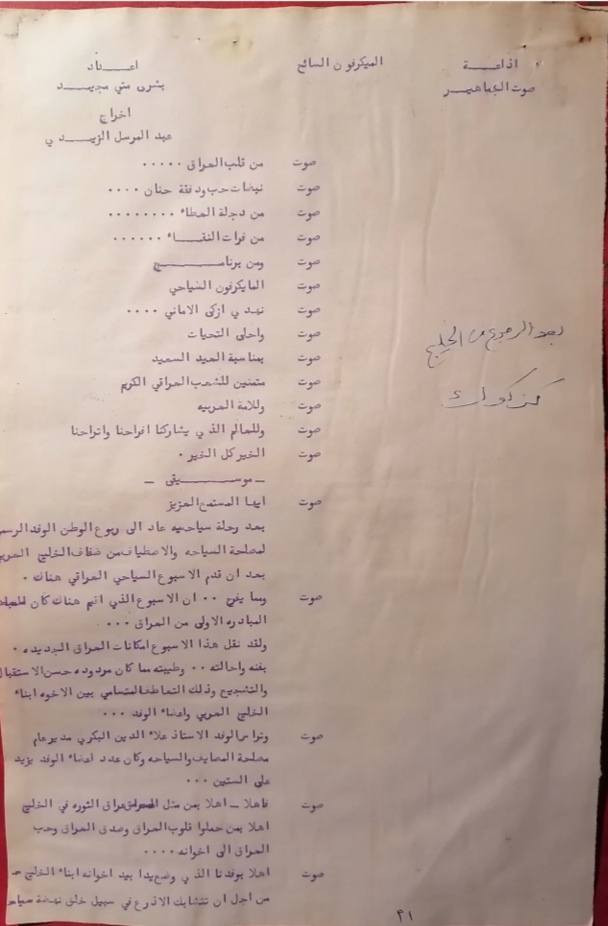 اذاعـــة الميكرفون السائح اعــــداد
صوت الجماهيــر بشرى مني مجيــد
اخراج
عبد المرسل الزيــدي
صوت من قلب العراق . . . . .
صوت نبضات حب ودفقة حنان . . . .
صوت من دجلة العطاء . . . . . . . .
صوت من فرات النقــاء . . . . . .
صوت ومن برنامـــــج
صوت المايكرفون السياحي
صوت نهدي ازكى الاماني . . . .
صوت واحلى التحيات
بعد الرجوع من الخليج
صوت بمناسبة العيد السعيد
صوت متمنين للشعب العراقي الكريم
صوت وللامة العربيه
صوت وللعالم الذي يشاركنا افراحنا واتراحنا
صوت الخير كل الخير .
ــ موســـيقى ــ
صوت ايها المستمع العزيز
بعد رحلة سياحيه عاد الى ربوع الوطن الوفد الرسم
لمصلحة السياحه والاصطياف من ضفاف الخليج العربي
بعد ان قدم الاسبوع السياحي العراقي هناك .
صوت ومما يفرح . . ان الاسبوع الذي اقيم هناك كان
المبادره الاولى من العراق . . .
ولقد نقل هذا الاسبوع امكانات العراق الجديده .
بفنه واصالته . . وطيبته مما كان مردوده حسن الاستقبال
والتشجيع وذلك التعاطف المتسامي بين الاخوه ابناء
الخليج العربي واعضاء الوفد . . .
صوت وتراس الوفد الاستاذ علاء الدين البكري مدير عام
مصلحة المصايف والسياحه وكان عدد اعضاء الوفد يزيد
على الستين . . .
صوت فاهلا ــ اهلا بمن مثل عراق الثوره في الخليج
اهلا بمن حملوا قلوب العراق وصدى العراق وحب
العراق الى اخوانه . . . .
صوت اهلا بوفدنا الذي وضع يدا بيد اخوانه ابناء الخليج
من اجل ان تتشابك الاذرع في سبيل خلق نهضة سياح
٤١